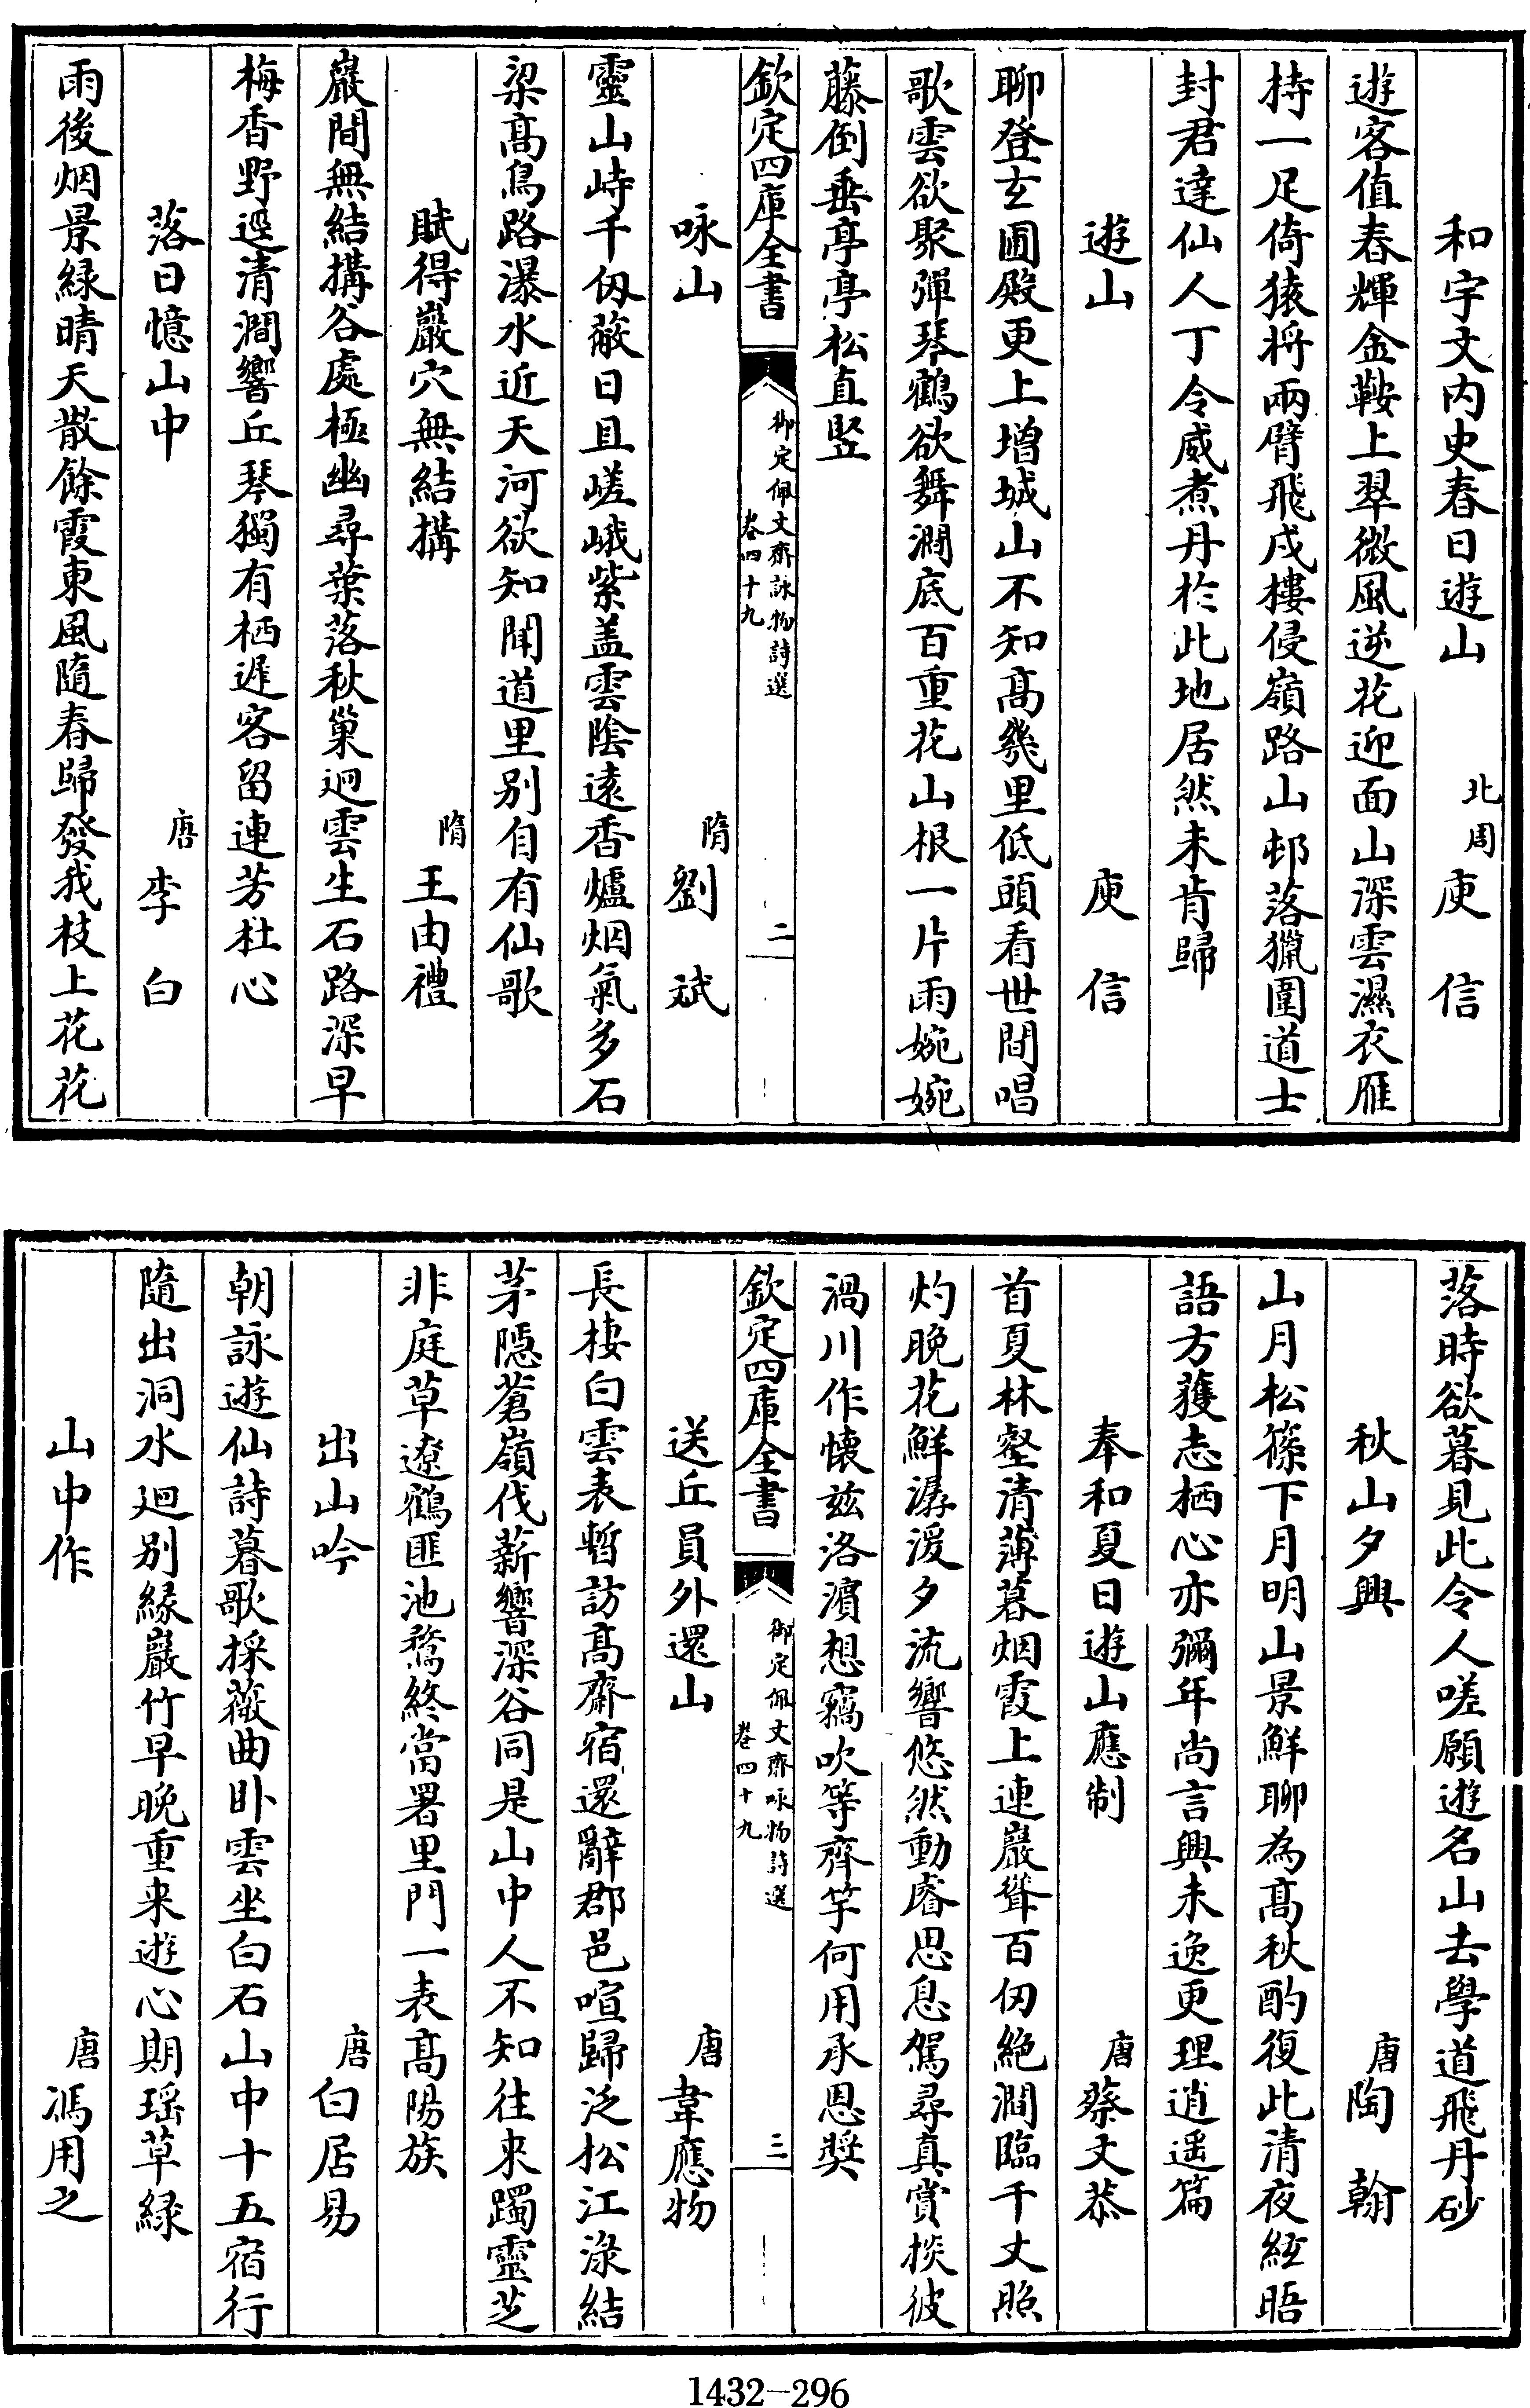 和宇文内史春日遊山　北周　庾信
遊客值春輝金鞍上翠微風逆花迎面山深雲濕衣雁
持一足倚猿将兩臂飛戍樓侵嶺路山邨落獵圍道士
封君達仙人丁令威煮丹於此地居然未肯歸
遊山　庾信
聊登玄圃殿更上增城山不知髙幾里低頭看世間唱
歌雲欲聚彈琴鶴欲舞澗底百重花山根一片雨婉婉
藤倒垂亭亭松直竪
欽定四庫全書
御定佩文齋詠物詩選
卷四十九
二
咏山　隋　劉斌
靈山峙千仭蔽日且嵯峨紫盖雲陰遠香爐烟氣多石
梁髙鳥路瀑水近天河欲知聞道里别自有仙歌
賦得巖穴無結構　隋　王由禮
巖間無結搆谷處極幽尋葉落秋巢迥雲生石路深早
梅香野逕清澗響丘琴獨有栖遲客留連芳杜心
落日憶山中　唐　李白
雨後烟景緑晴天散餘霞東風隨春歸發我枝上花花
落時欲暮見此令人嗟願遊名山去學道飛丹砂
秋山夕興　唐　陶翰
山月松篠下月明山景鮮聊為髙秋酌復此清夜絃晤
語方獲志栖心亦彌年尚言興未逸更理逍遥篇
奉和夏日遊山應制　唐　蔡文恭
首夏林壑清薄暮烟霞上連巖聳百仭絶澗臨千丈照
灼晚花鮮潺湲夕流響悠然動睿思息駕尋真賞掞彼
渦川作懷兹洛濱想竊吹等齊竽何用承恩奬
欽定四庫全書
御定佩文齋咏物詩選
卷四十九
三
送丘員外還山　唐　韋應物
長棲白雲表暫訪髙齋宿還辭郡邑喧歸泛松江渌結
茅隠蒼嶺伐薪響深谷同是山中人不知往來躅靈芝
非庭草遼鶴匪池鶩終當署里門一表髙陽族
出山吟　唐　白居易
朝詠遊仙詩暮歌採薇曲卧雲坐白石山中十五宿行
隨出洞水廻别緣巖竹早晚重来遊心期瑶草緑
山中作　唐　馮用之
1432—296